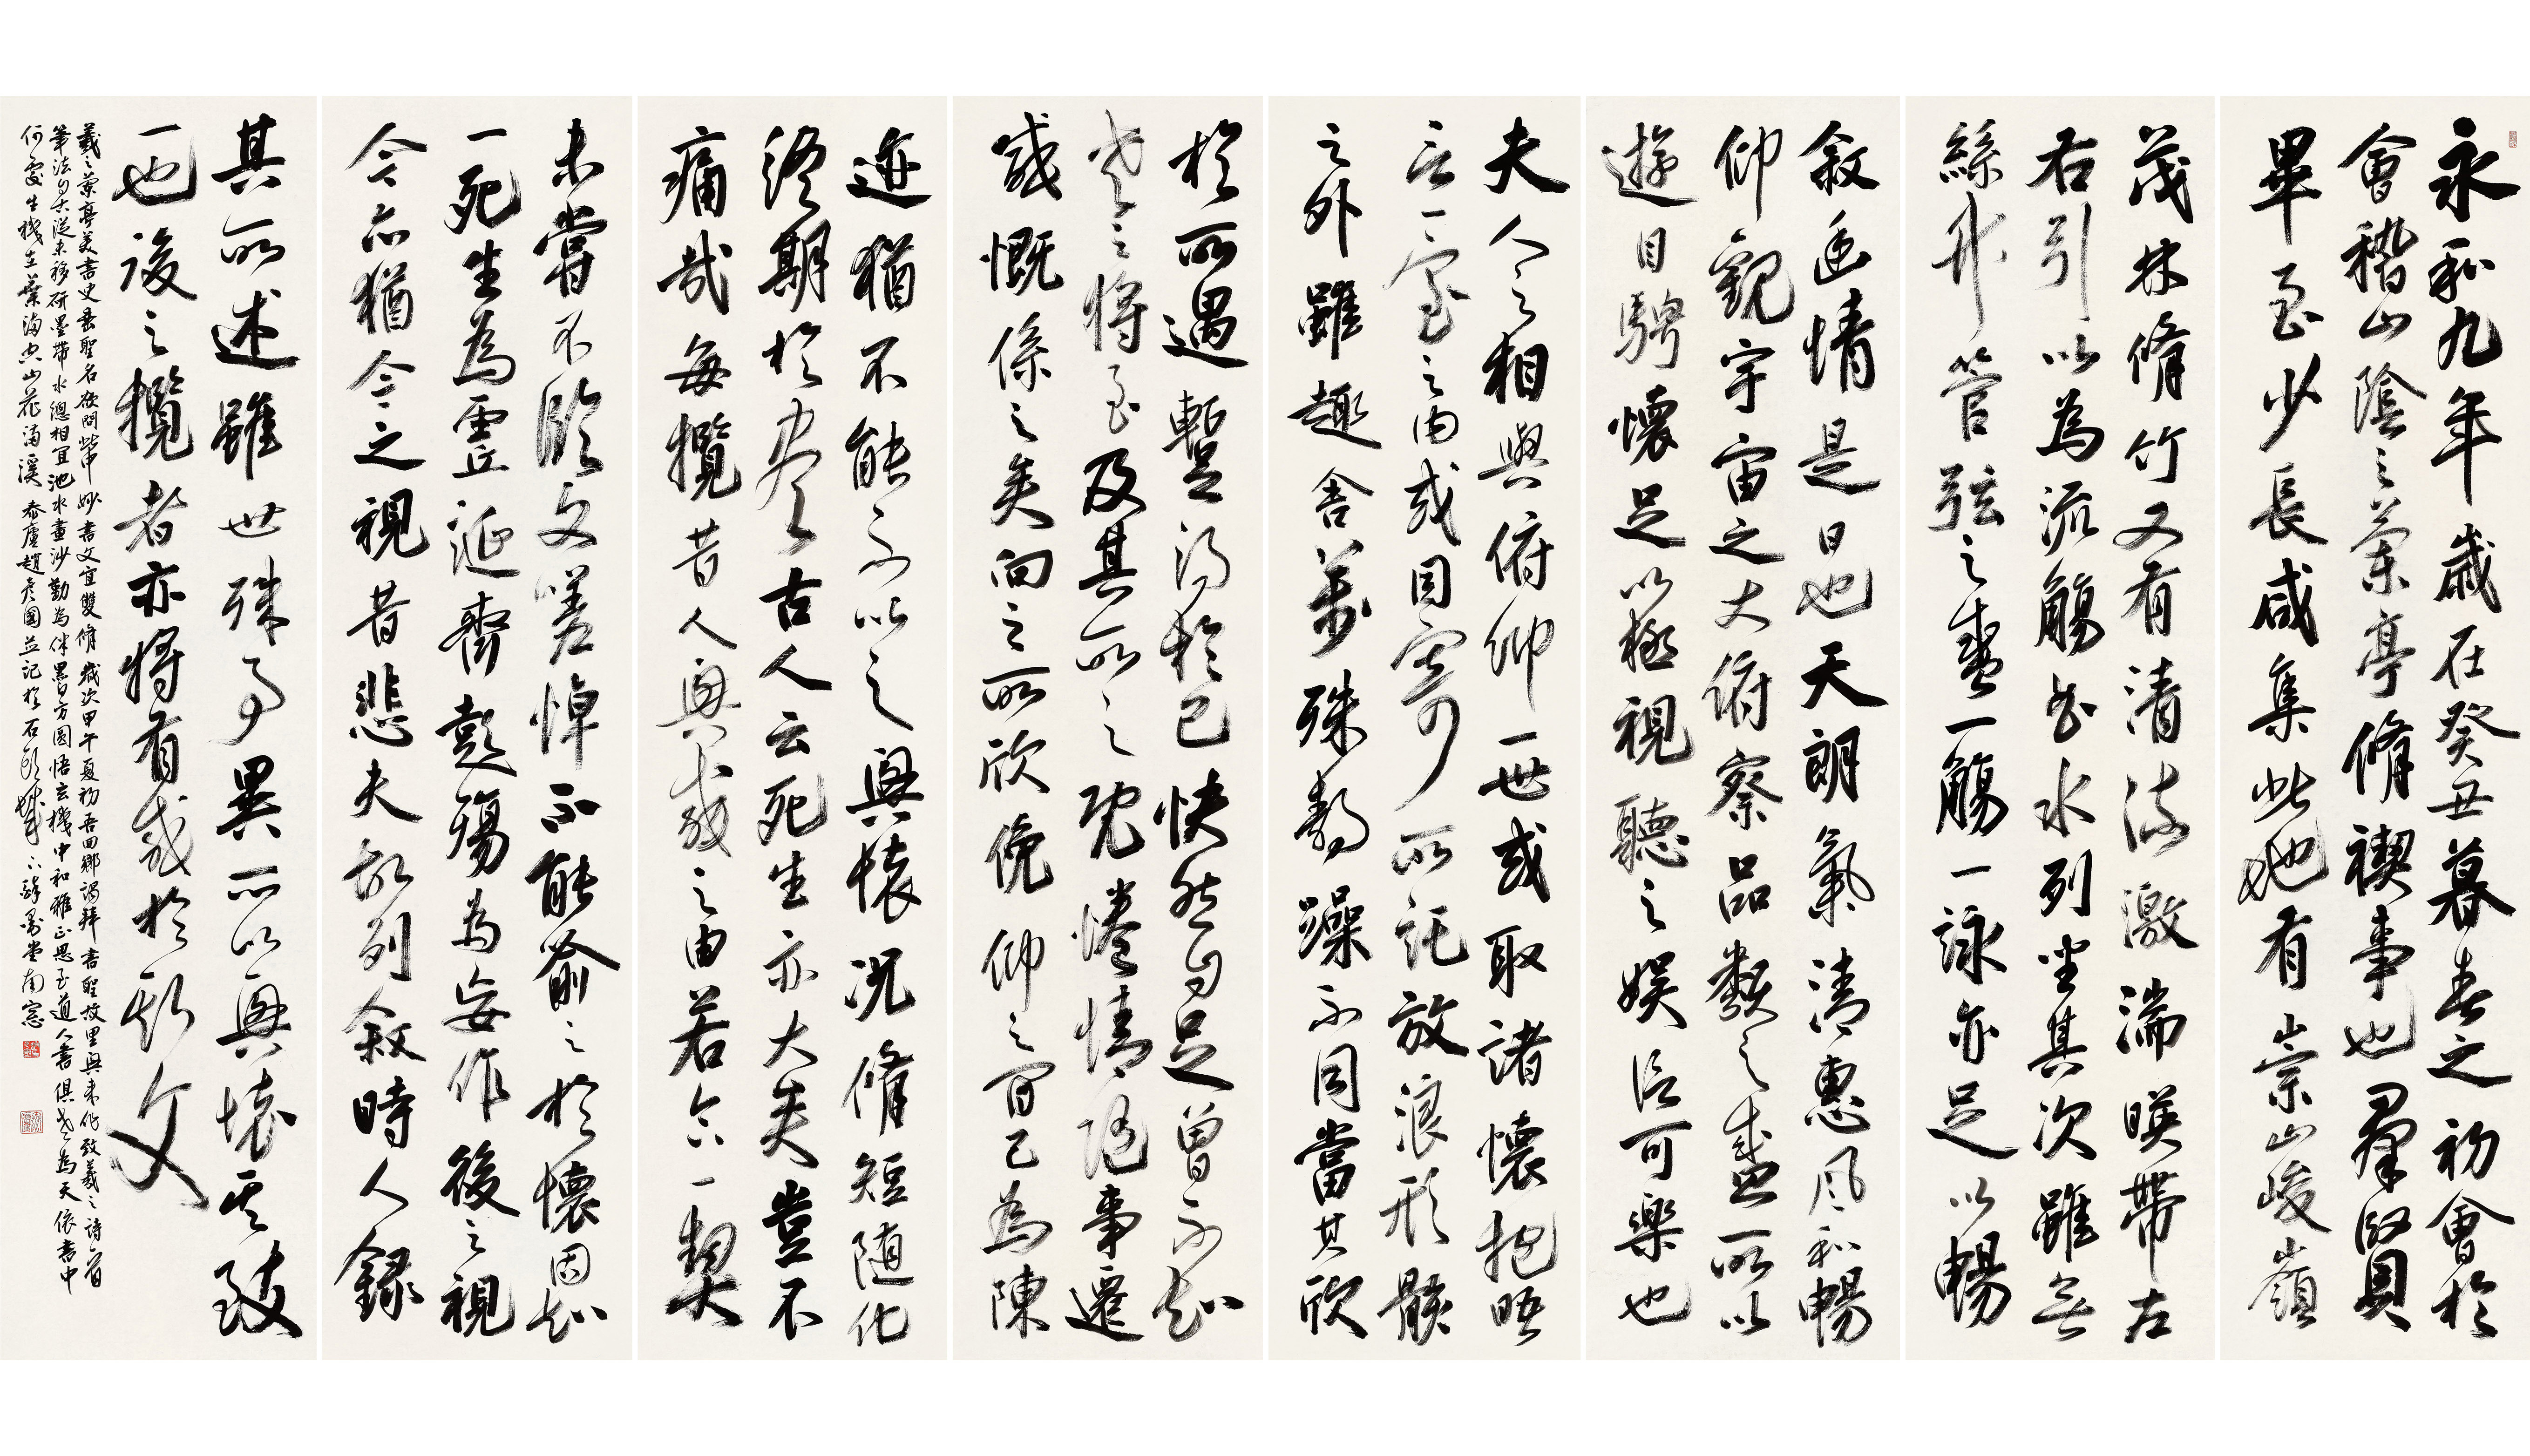 永和九年歲在癸丑暮春之初會於
會稽山陰之蘭亭脩禊事也羣賢
畢至少長咸集此地有崇山峻嶺
茂林脩竹又有清流激湍暎帶左
右引以為流觴曲水列坐其次雖無
絲竹管弦之盛一觴一詠亦足以暢
敘幽情是日也天朗氣清惠風和暢
仰觀宇宙之大俯察品類之盛所以
遊目騁懷足以極視聽之娛信可樂也
夫人之相與俯仰一世或取諸懷抱晤
言一室之內或因寄所託放浪形骸
之外雖趣舍萬殊靜躁不同當其欣
於所遇暫得於己快然自足曾不知
老之將至及其所之既惓情隨事遷
感慨係之矣向之所欣俛仰之間已為陳
迹猶不能不以之興懷況脩短隨化
終期於盡古人云死生亦大矣豈不
痛哉每攬昔人興感之由若合一契
未嘗不臨文嗟悼不能喻之於懷固知
一死生為虛誕齊彭殤為妄作後之視
今亦猶今之視昔悲夫故列敘時人錄
其所述雖世殊事異所以興懷其致
一也後之攬者亦將有感於斯文
羲之蘭亭美書史垂聖名欲問此中妙書文宜雙脩歲次甲午夏初吾回鄉謁拜書聖故里興來作致羲之詩一首
筆法自古從未移研墨帶水總相宜池水畫沙勤為伴墨白方圓悟玄機中和雅正思至道人書俱老為天依書中
何處生機在葉滿空山花滿溪 泰廬趙彥國並記於石頭城 墨堂南窗